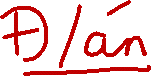 Đ/án